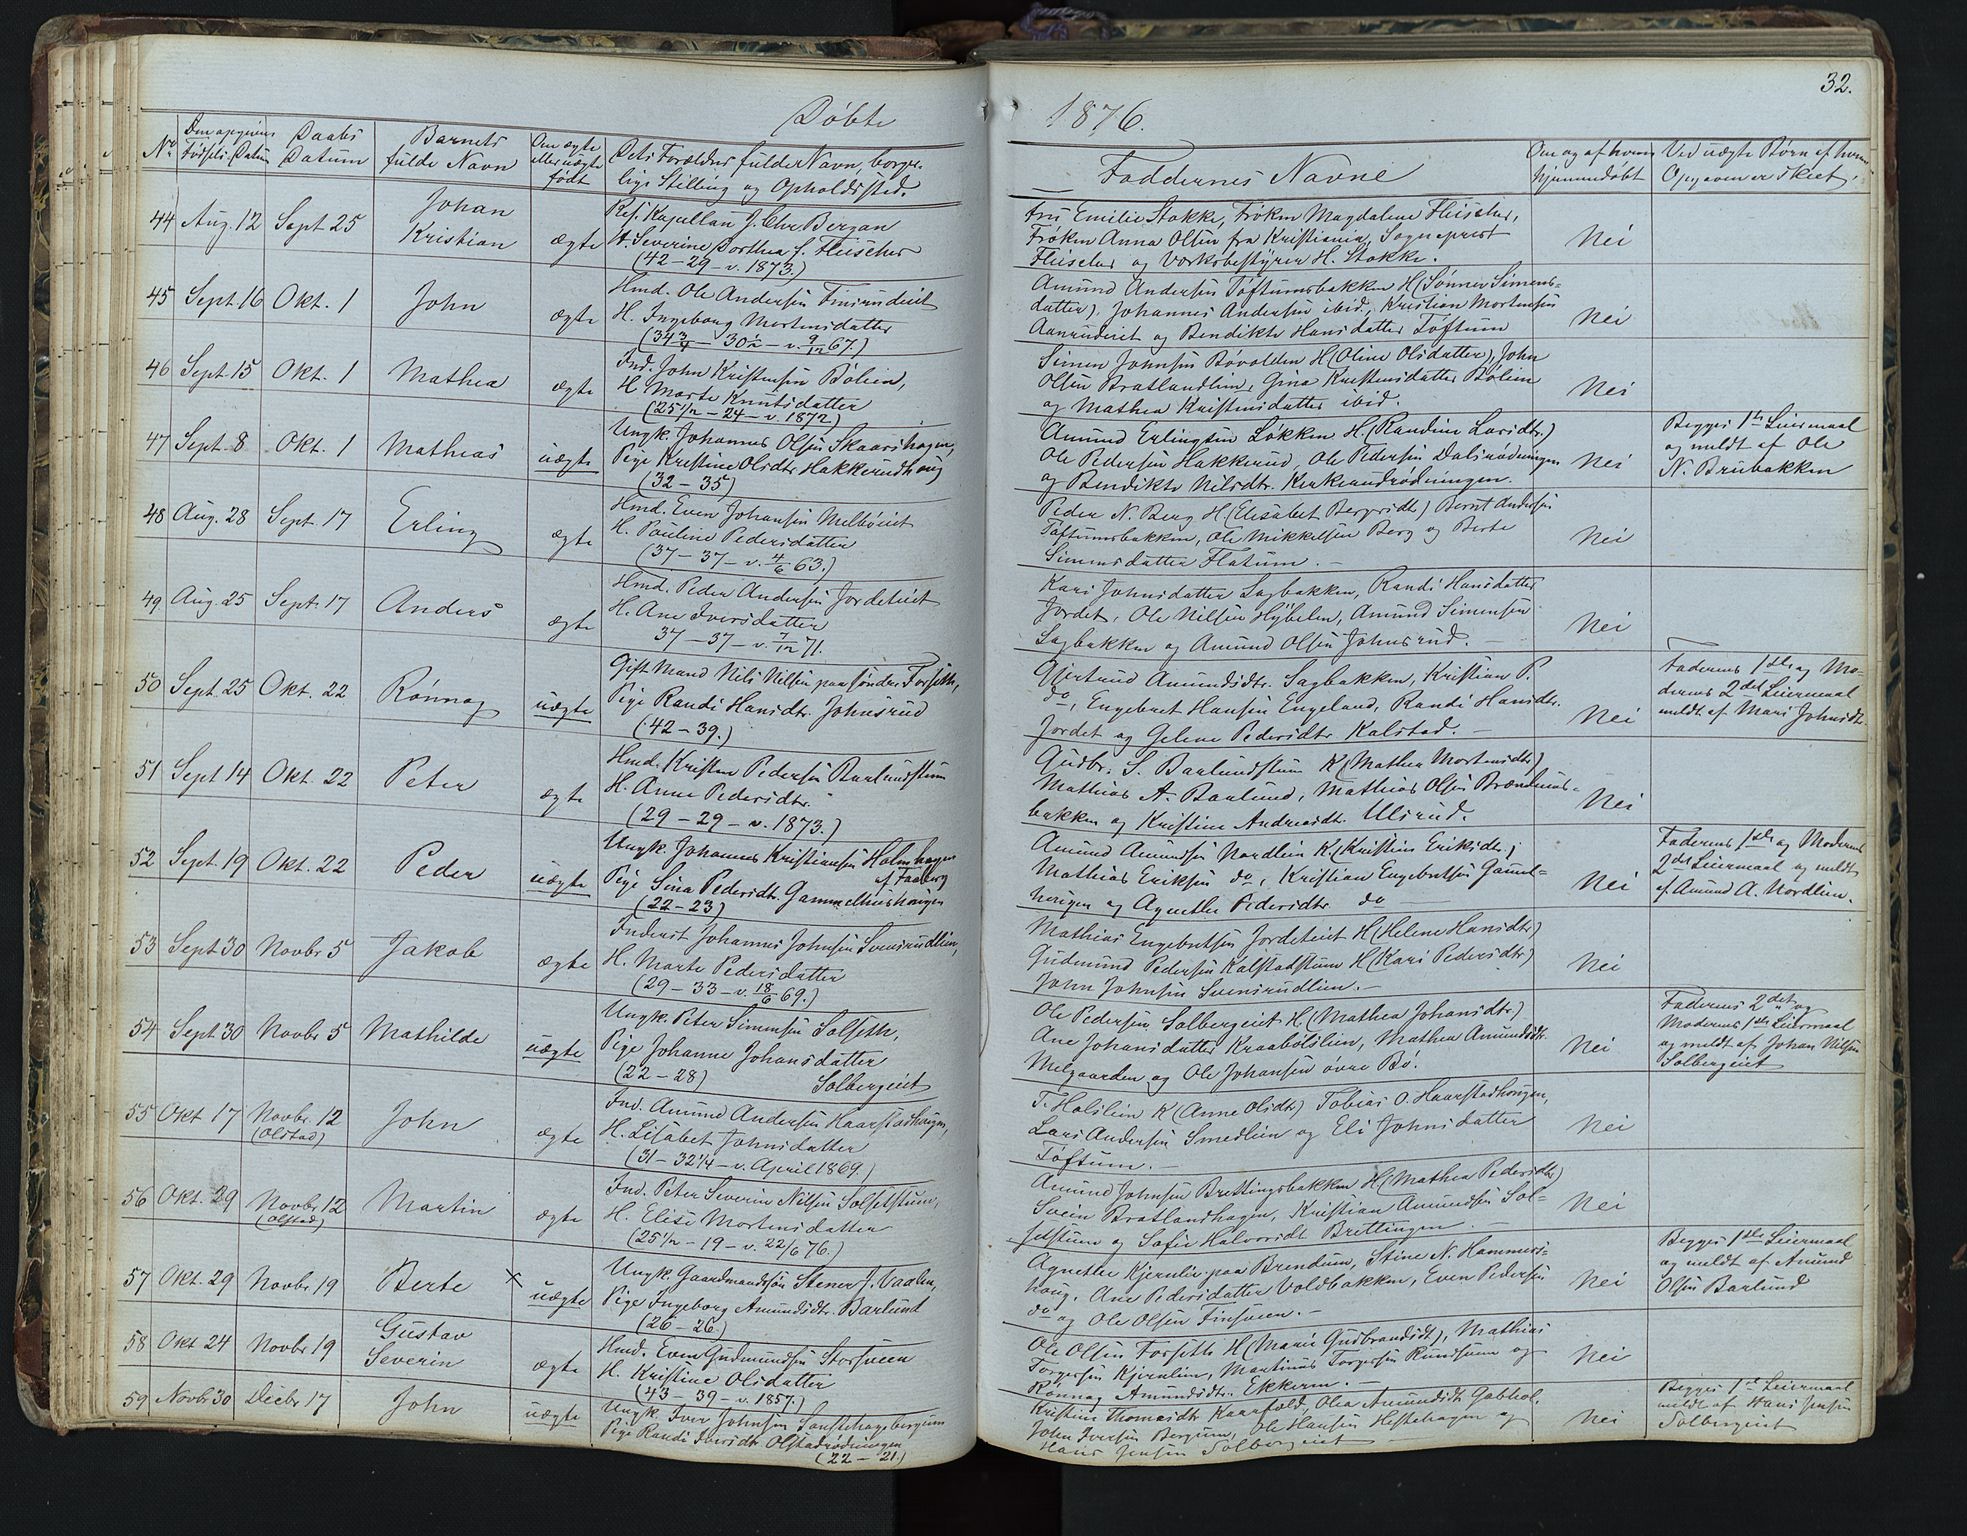 32.
Døbte 1876.
No
Den opgivne Fødsels Datum
Daabs Datum
Barnets fulde Navn
Om ægte eller uægte født
Dets Forældres fulde Navn, borgerlige Stilling og Opholdssted.
Faddernes Navne
Om og af hvem hjemmedøbt
Ved uægte Børn af hvem Opgaven er skeet.
44 Aug. 12 Sept 25 Johan Kristian ægte
Res. Kapellan J. Chr. Bergan
H. Severine Dorthea f. Fleischer
(42 – 29 – v. 1873.)
Fru Emilie Stokke, Frøken Magdalene Fleischer,
Frøken Anna Olsen fra Kristiania, Sogneprest
Fleischer og Værksbestyrer H. Stokke.
Nei
45 Sept. 16 Okt. 1 John ægte
Hmd. Ole Andersen Finsrudeiet
H. Ingeborg Mortensdatter
(34 3/4 – 30 1/2 – v. 9/12 67.)
Amund Andersen Toftumsbakken H (Sønnev Simens-
datter), Johannes Andersen ibid., Kristian Mortensen
Aanrudeiet og Bendikte Hansdatter Toftum
Nei
46 Sept. 15 Okt. 1 Mathea ægte
Ind. John Kristensen Bølien,
H. Marte Knutsdatter
(25 1/2 – 24 – v. 1872)
Simen Johnsen Bøvolden H (Oline Olsdatter), John
Olsen Bratlandlien, Gina Kristensdatter Bølien
og Mathea Kristensdatter ibid.
Nei
47 Sept. 8 Okt. 1 Mathias uægte
Ungk. Johannes Olsen Skaarshagen,
Pige Kristine Olsdtr. Hakkerudhaug
(32 – 35)
Amund Erlingsen Løkken H. (Randine Larsdtr.)
Ole Pedersen Hakkerud, Ole Pedersen Dalsrødningen
og Bendikte Nilsdtr. Kirkerudrødningen.
Nei
Begges 1ste Leiermaal
og meldt af Ole
N. Brubakken
48 Aug. 28 Sept. 17 Erling ægte
Hmd. Even Johansen Melbøeiet
H. Pauline Pedersdatter
(37 – 37 – v. 4/6 63.)
Peder N. Berg H (Elisabet Bergersdt.) Bernt Andersen
Toftumsbakken, Ole Mikkelsen Berg og Berte
Simensdatter Flatum. –
Nei
49 Aug. 25 Sept. 17 Anders ægte
Hmd. Peder Andersen Jordeteiet
H. Ane Iversdatter
37 – 37 – v. 7/12 71.
Kari Johnsdatter Sagbakken, Randi Hansdatter
Jordet, Ole Nilsen Hybelen, Amund Simensen
Sagbakken og Amund Olsen Johnsrud. –
Nei
50 Sept. 25 Okt. 22 Rønnog uægte
Gift Mand Nils Nilsen paa søndre Forseth,
Pige Randi Hansdtr. Johnsrud
(42 – 39.)
Gjertrud Amundsdtr. Sagbakken, Kristian P.
do, Engebret Hansen Engeland, Randi Hansdtr.
Jordet og Gelene Pedersdtr. Kalstad. –
Nei
Faderens 1ste og Mo-
derens 2det Leiermaal
meldt af Mari Johnsdtr.
51 Sept 14 Okt. 22 Peter ægte
Hmd. Kristen Pedersen Baarlundstuen
H. Anne Pedersdtr.
(29 – 29 – v. 1873.)
Gudbr. S. Baarlundstuen K (Mathea Mortensdtr)
Mathias A. Baarlund, Mathias Olsen Brændmos-
bakken og Kristine Andreasdt. Ulsrud.
Nei
52 Sept. 19 Okt. 22 Peder uægte
Ungk. Johannes Kristiansen Holmhagen
af Faaberg
Pige Sina Pedersdt. Gammelhushaugen
(22 – 23)
Amund Amundsen Nordlien K (Kristine Eriksdtr.),
Mathias Eriksen do, Kristian Engebretsen Gamel-
haugen og Agnethe Pedersdtr do –
Nei
Faderens 1ste og Moderens
2det Leiermaal og meldt
af Amund A. Nordlien.
53 Sept 30 Novbr 5 Jakob ægte
Inderst Johannes Johnsen Svensrudlien,
H. Marte Pedersdatter
(29 – 33 – v. 18/6 69.)
Mathias Engebretsen Jordeteiet H (Helene Hansdtr)
Gudmund Pedersen Kalstadstuen H (Kari Pedersdtr)
John Johnsen Svensrudlien. –
Nei
54 Sept 30 Novbr 5 Mathilde uægte
Ungk. Peter Simensen Solseth,
Pige Johanne Johansdatter
(22 – 28) Solbergeiet
Ole Pedersen Solbergeiet H (Mathea Johansdtr)
Ane Johansdatter Kraabølslien, Mathea Amundsdtr.
Melgaarden og Ole Johansen øvre Bø.
Nei
Faderens 2det og
Moderens 1ste Leiermaal
og meldt af Johan Nilsen
Solbergeiet
55 Okt 17 Novbr. 12 (Olstad) John ægte
Ind. Amund Andersen Haarstadhaugen,
H. Lisabet Johnsdatter
(31 – 32 1/4 – v. April 1869)
T. Holslien K (Anne Olsdt.) Tobias O. Haarstadhaugen,
Lars Andersen Smedlien og Eli Johnsdatter
Toftum. –
Nei
56 Okt. 29 Novbr 12 (Olstad) Martin ægte
Ind. Peter Severin Nilsen Solsetstuen,
H. Elise Mortensdatter
(25 1/2 – 19 – v. 22/6 76.)
Amund Johnsen Brettingsbakken H (Mathea Pedersdtr)
Svein Bratlandhagen, Kristian Amundsen Sol-
setstuen og Sofie Halvorsdt Brettingen. –
Nei
57 Okt. 29 Novbr 19 Berte × uægte
Ungk. Gaardmandssøn Stener J. Vaalen,
Pige Ingeborg Amundsdtr. Barlund
(26 – 26.)
Agnethe Kjernlie paa Brendum, Stine N. Hammers-
haug, Ane Pedersdatter Voldbakken, Even Pedersen
do og Ole Olsen Finsveen. –
Nei
Begges 1ste Leiermaal
og meldt af Amund
Olsen Barlund
58 Okt 24 Novbr 19 Gustav Severin ægte
Hmd. Even Gudmundsen Storsveen
H. Kristine Olsdatter
(43 – 39 – v. 1857.)
Ole Olsen Forseth H (Marie Gudbrandsdt), Mathias
Torgersen Kjernlien, Martinus Torgersen Rundsveen og
Rønnog Amundsdt. Ekkern. –
Nei
59 Novbr 30 Decbr 17 John uægte
Ungk. Iver Johnsen Bergum
Pige Randi Iversdt Olstadrødningen
(22 – 21.)
Kristine Thomasdt. Kaarfald, Olea Amundsdt Gabhol.
John Iversen Bergum, Ole Hansen Hestehagen og
Hans Jensen Solbergeiet
Nei
Begges 1ste Leiermaal
meldt af Hans Jensen
Solbergeiet